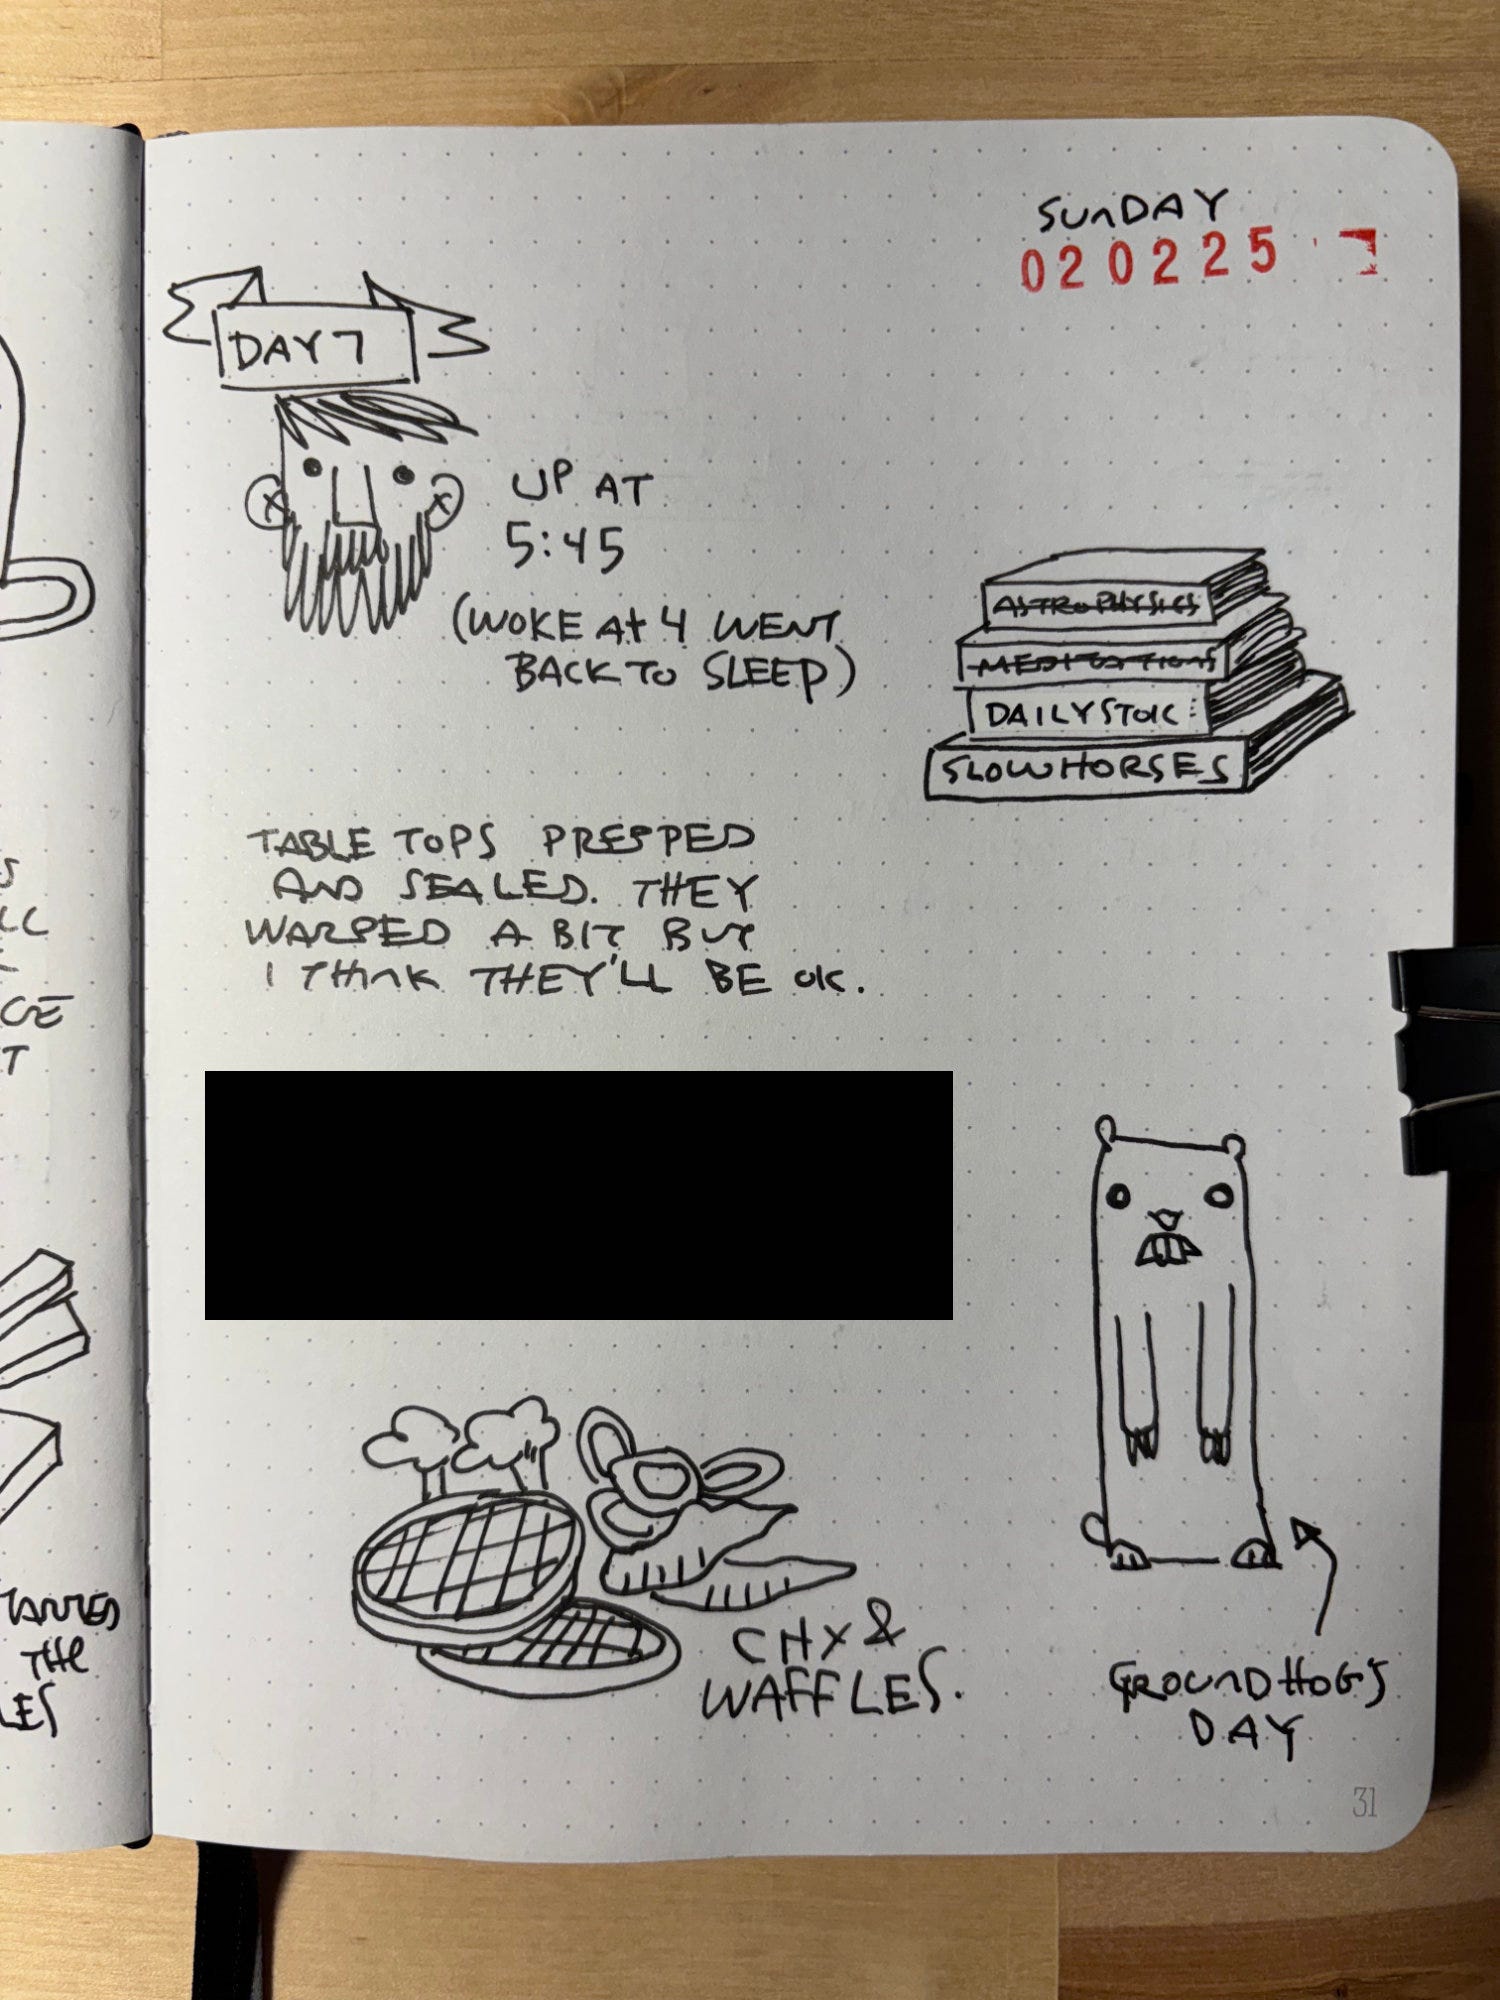 SUNDAY
020225
DAY 7
UP AT
5:45
(WOKE AT 4 WENT
BACK TO SLEEP)
ASTROPHYSICS
MEDITATIONS
DAILY STOIC
SLOW HORSES
TABLE TOPS PREPPED
AND SEALED. THEY
WARPED A BIT BUT
I THINK THEY'LL BE OK.
CHX &
WAFFLES.
GROUNDHOGS
DAY
31
THE